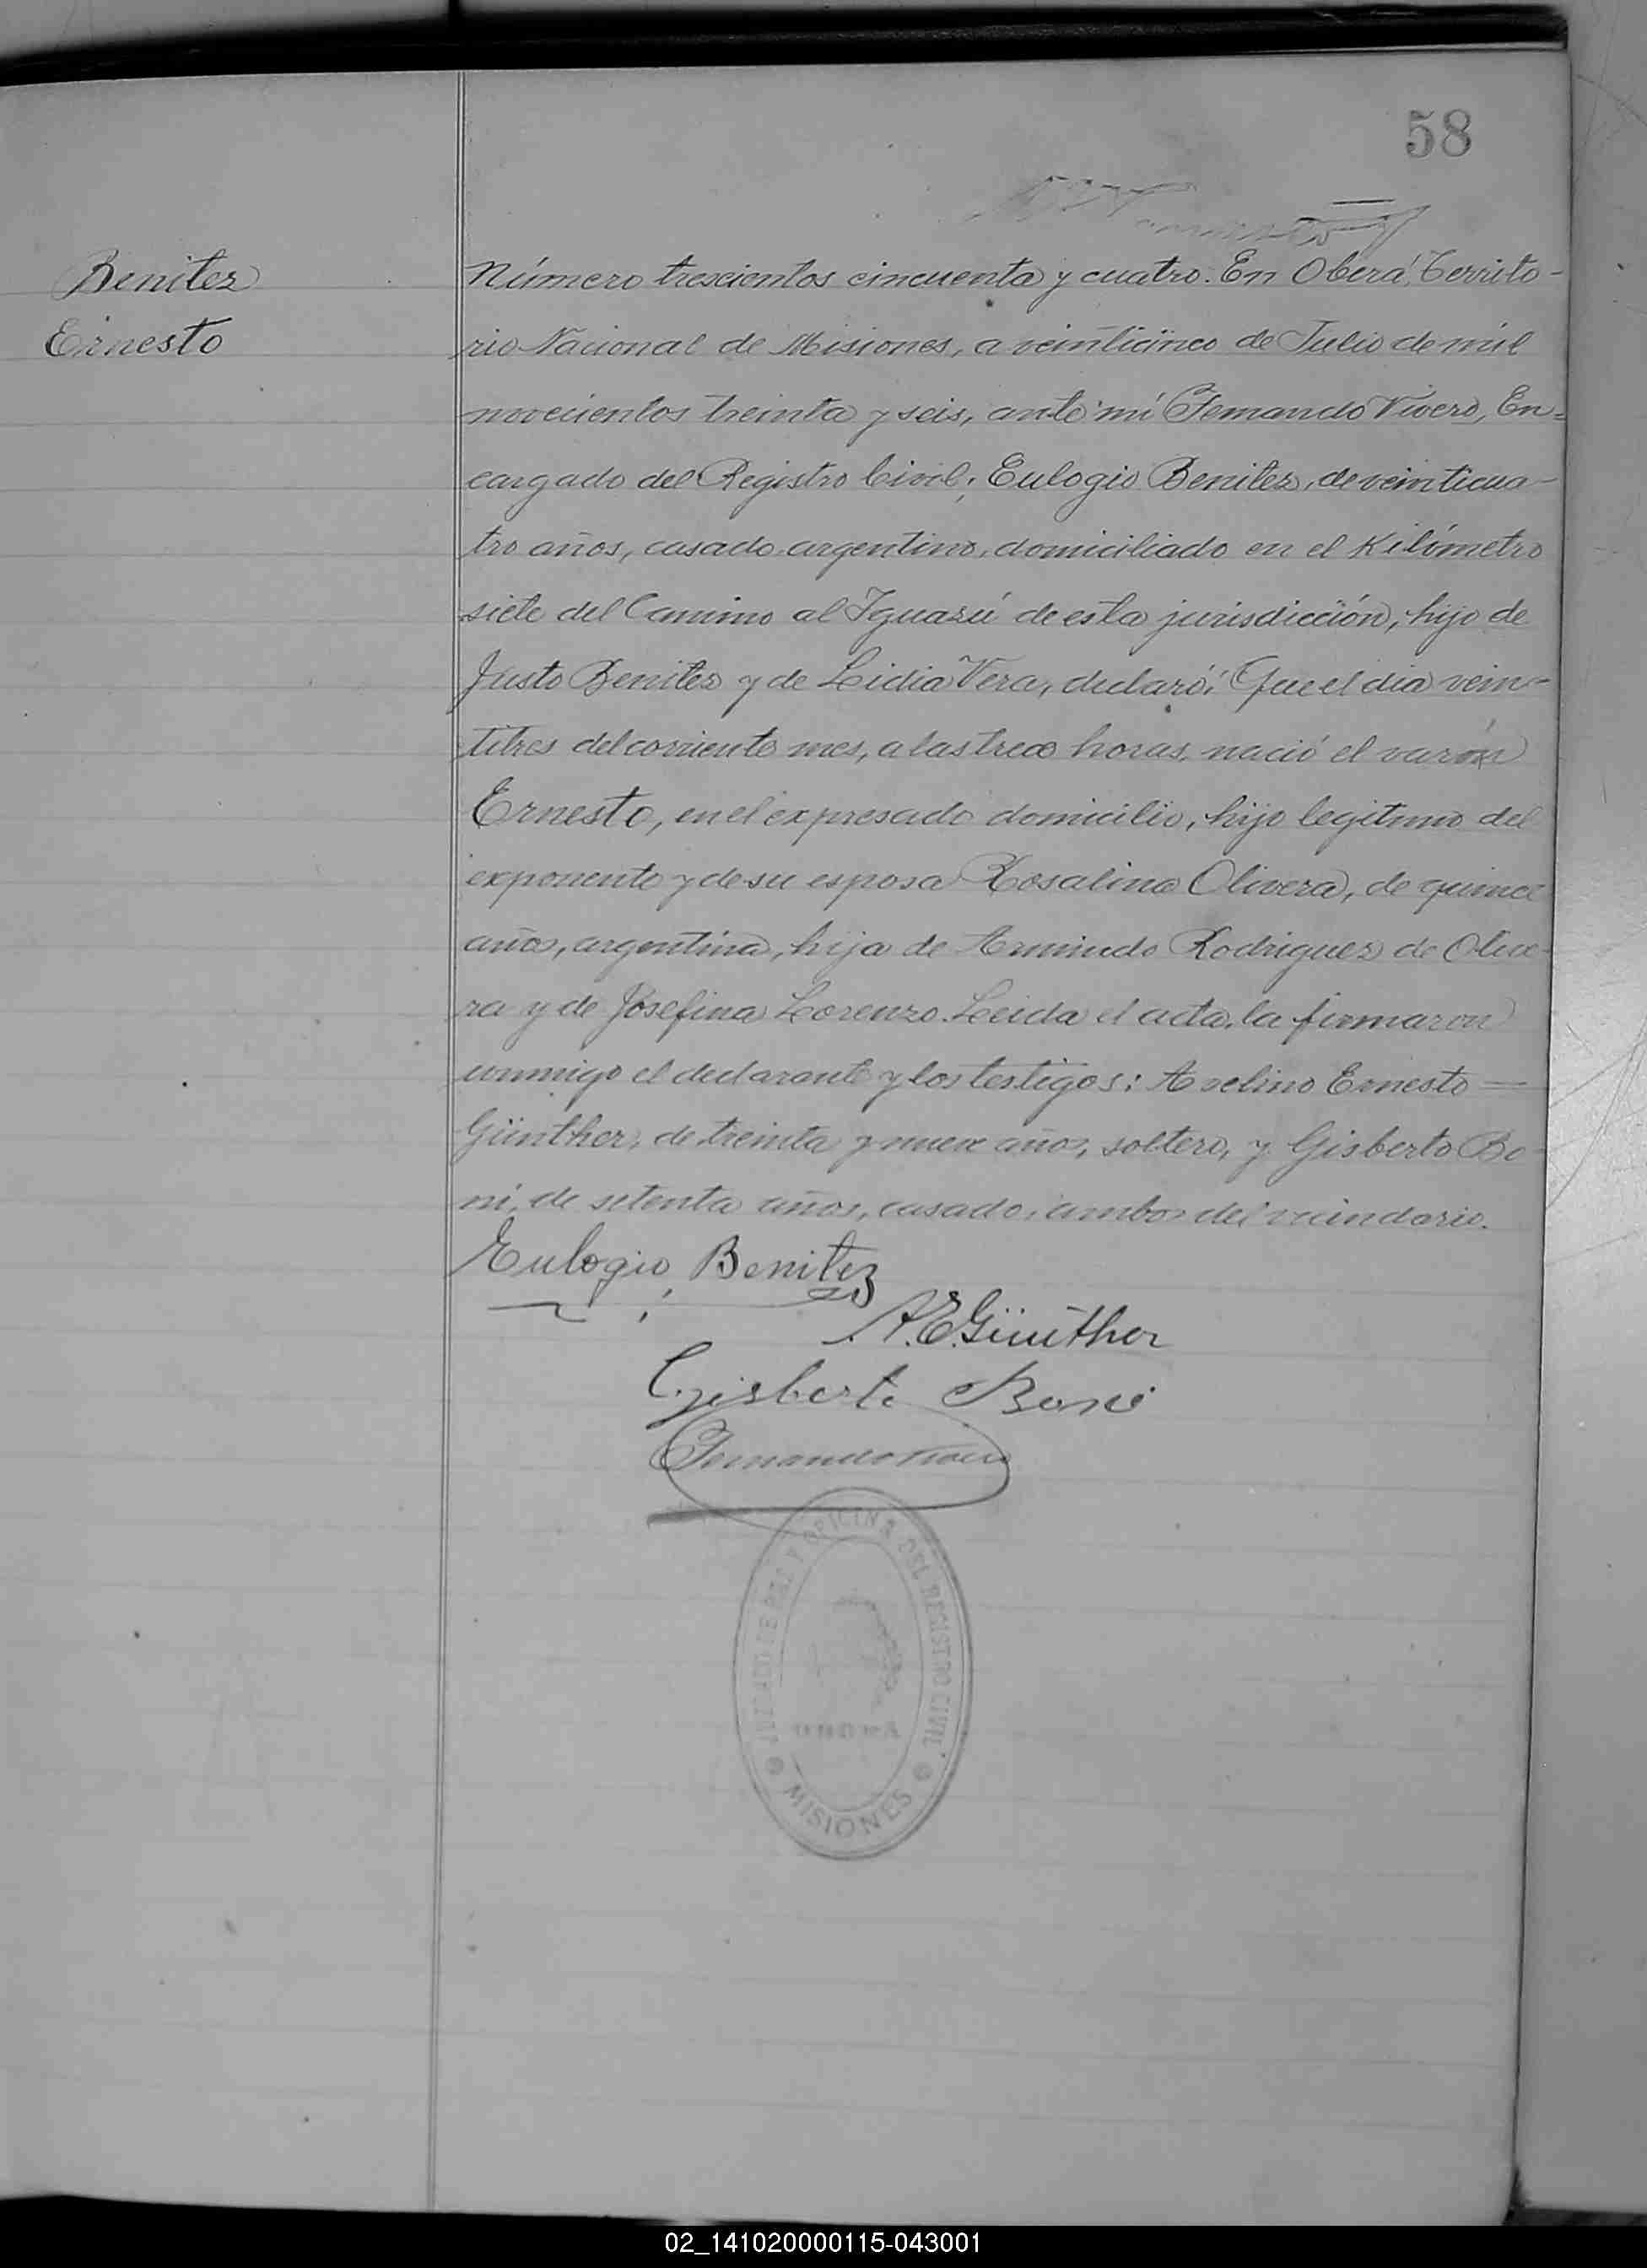 58
Benitez
Ernesto
Número trescientos cincuenta y cuatro. En Oberá, Territo-
rio Nacional de Misiones, a veinticinco de Julio de mil
novecientos treinta y seis, ante mí Fernando Vivero, En=
cargado del Registro Civil; Eulogio Benitez, de veinticua-
tro años, casado, argentino, domiciliado en el Kilómetro
siete del Camino al Iguazú de esta jurisdicción, hijo de
Justo Benitez y de Lidia Vera, declaró: Que el día vein-
titres del corriente mes, a las trece horas, nació el varón
Ernesto, en el expresado domicilio, hijo legitimo del
exponente y de su esposa Rosalina Olivera, de quince
años, argentina, hija de Armindo Rodriguez de Olive-
ra y de Josefina Lorenzo. Leida el acta, la firmaron
conmigo el declarante y los testigos: Avelino Ernesto =
Günther, de treinta y nueve años, soltero, y Gisberto Bo-
ni, de setenta años, casado, ambos del vecindario.
Eulogio Benitez
A.E.Günther
Gisberto Boni
Fernando Vivero
JUZGADO DE PAZ Y OFICINA DEL REGISTRO CIVIL
OBERÁ
MISIONES
02_141020000115-043001